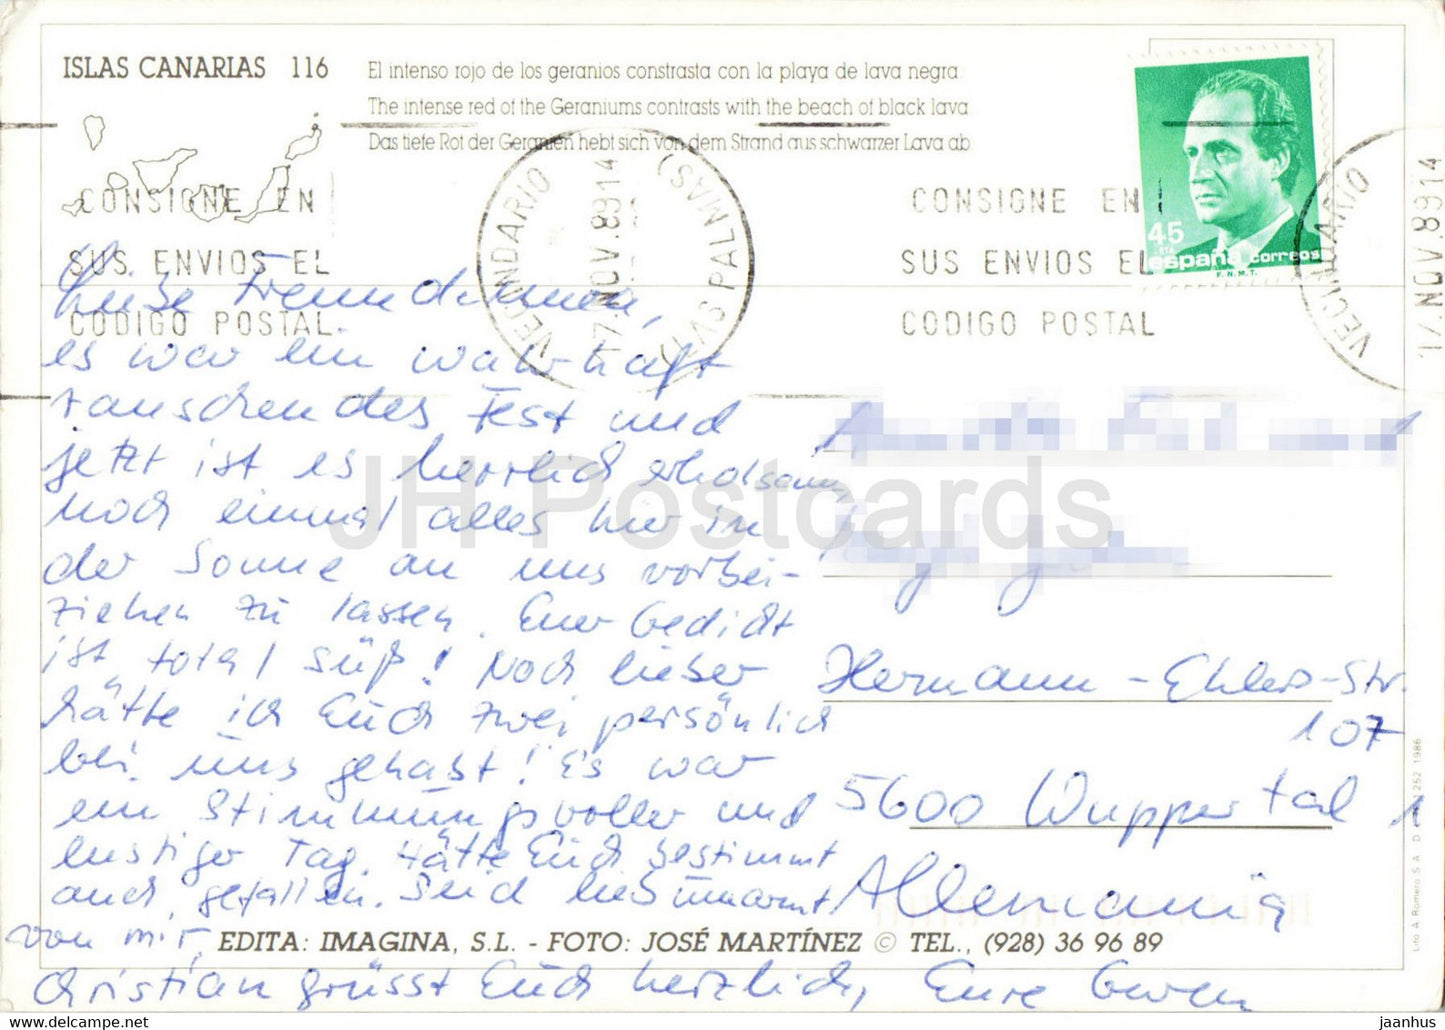 ISLAS CANARIAS 116
El intenso rojo de los geranios constrasta con la playa de lava negra
The intense red of the Geraniums contrasts with the beach of black lava
Das tiefe Rot der Geranien hebt sich von dem Strand aus schwarzer Lava ab
CONSIGNE EN
SUS ENVIOS EL
CODIGO POSTAL
VECINDARIO
(LAS PALMAS)
17 NOV. 89 14
CONSIGNE EN
SUS ENVIOS EL
CODIGO POSTAL
45
PTA
españa correos
F.N.M.T.
VECINDARIO
17 NOV. 89 14
es war ein wahrhaft
rauschendes Fest und
jetzt ist es herrlich erholsam,
noch einmal alles hier in
der Sonne an uns vorbei-
ziehen zu lassen. Euer Gedicht
ist total süß! Noch lieber
hätte ich Euch zwei persönlich
bei uns gehabt! Es war
ein stimmungsvoller und
lustiger Tag. Hätte Euch bestimmt
auch gefallen. Seid lieb umarmt
von mir,
Christian grüsst Euch herzlich, Eure
Hermann-Ehlers-Str.
107
5600 Wuppertal 1
Allemania
EDITA: IMAGINA, S.L. - FOTO: JOSÉ MARTÍNEZ © TEL., (928) 36 96 89
Lito A Romero S A
252 1986
JH Postcards
https://www.delcampe.net
jaanhus